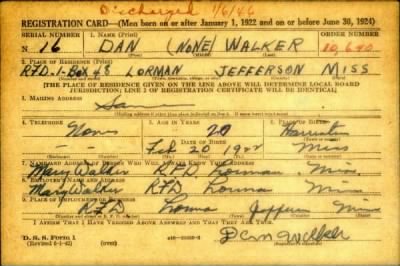 Discharged 1/6/46
REGISTRATION CARD—(Men born on or after January 1, 1922 and on or before June 30, 1924)
SERIAL NUMBER 1. NAME (Print) ORDER NUMBER
N 16 DAN (NONE) WALKER 10,640
2. PLACE OF RESIDENCE (Print)
RFD-1-Box 48 LORMAN JEFFERSON MISS
[THE PLACE OF RESIDENCE GIVEN ON THE LINE ABOVE WILL DETERMINE LOCAL BOARD
JURISDICTION; LINE 2 OF REGISTRATION CERTIFICATE WILL BE IDENTICAL]
3. MAILING ADDRESS
Same
4. TELEPHONE 5. AGE IN YEARS 6. PLACE OF BIRTH
None 20
DATE OF BIRTH
-- Feb 20 1922 Miss
7. NAME AND ADDRESS OF PERSON WHO WILL ALWAYS KNOW YOUR ADDRESS
Mary Walker RFD Lorman Miss.
8. EMPLOYER'S NAME AND ADDRESS
Mary Walker RFD Lorman Miss
9. PLACE OF EMPLOYMENT OR BUSINESS
RFD Lorman Jefferson Miss
I AFFIRM THAT I HAVE VERIFIED ABOVE ANSWERS AND THAT THEY ARE TRUE.
D. S. S. Form 1
(Revised 6-1-42) (over)
Dan Walker